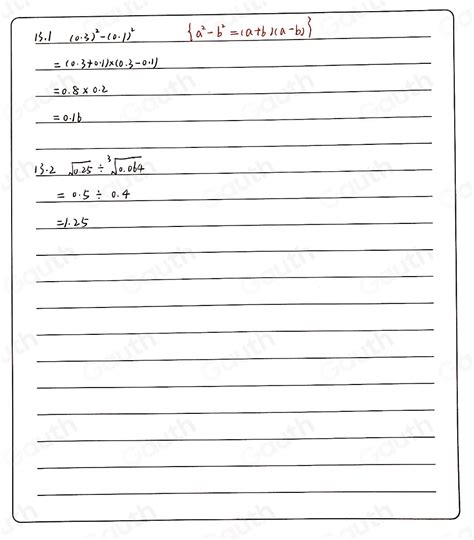 13.1 (0.3)² - (0.1)² {a² - b² = (a+b)(a-b)}
= (0.3+0.1)×(0.3-0.1)
= 0.8 × 0.2
= 0.16
13.2 √0.25 ÷ ³√0.064
= 0.5 ÷ 0.4
=1.25